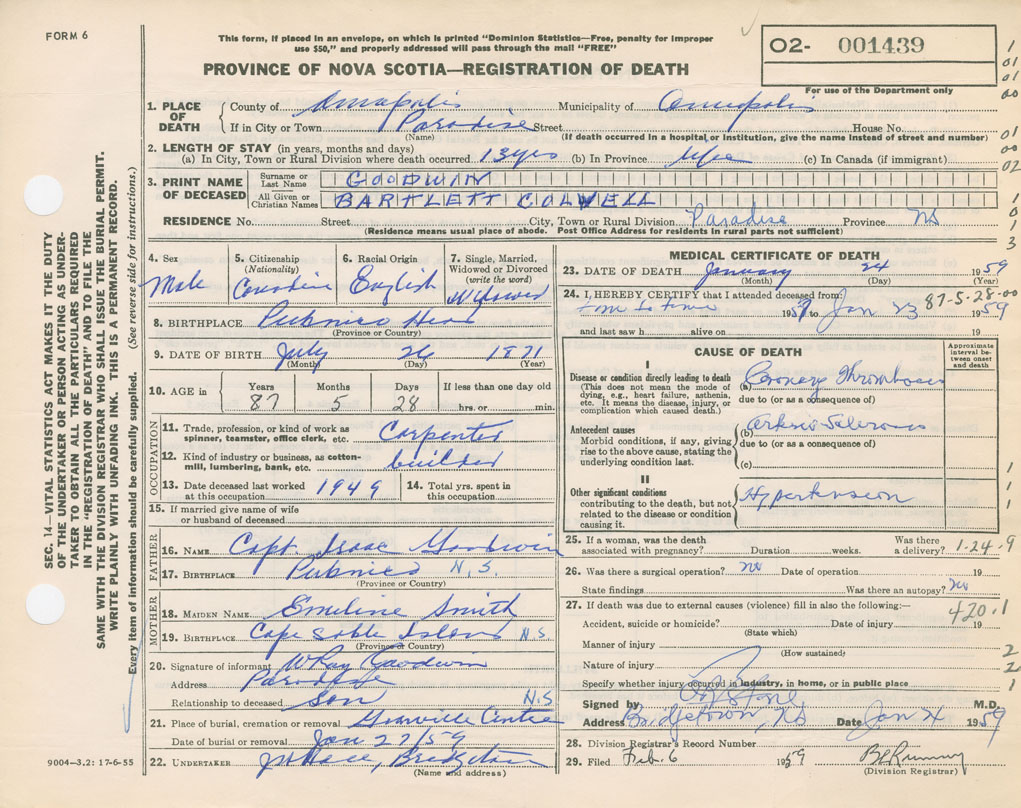 FORM 6
This form, if placed in an envelope, on which is printed "Dominion Statistics—Free, penalty for improper
use $50," and properly addressed will pass through the mail "FREE"
PROVINCE OF NOVA SCOTIA—REGISTRATION OF DEATH
O2- 001439
For use of the Department only
1. PLACE OF DEATH { County of Annapolis Municipality of Annapolis
If in City or Town Paradise Street House No.
(Name) (If death occurred in a hospital or institution, give the name instead of street and number)
2. LENGTH OF STAY (in years, months and days)
(a) In City, Town or Rural Division where death occurred 13 yrs (b) In Province Life (c) In Canada (if immigrant)
3. PRINT NAME OF DECEASED { Surname or Last Name GOODWIN
All Given or Christian Names BARTLETT COLWELL
RESIDENCE No. Street City, Town or Rural Division Paradise Province NS
(Residence means usual place of abode. Post Office Address for residents in rural parts not sufficient)
4. Sex Male
5. Citizenship (Nationality) Canadian
6. Racial Origin English
7. Single, Married, Widowed or Divorced (write the word) Widowed
8. BIRTHPLACE Pubnico Head
(Province or Country)
9. DATE OF BIRTH July 26 1871
(Month) (Day) (Year)
10. AGE in Years 87 Months 5 Days 28 If less than one day old hrs. or min.
OCCUPATION
11. Trade, profession, or kind of work as spinner, teamster, office clerk, etc. Carpenter
12. Kind of industry or business, as cotton-mill, lumbering, bank, etc. builder
13. Date deceased last worked at this occupation 1949 14. Total yrs. spent in this occupation
15. If married give name of wife or husband of deceased
FATHER
16. NAME Capt. Isaac Goodwin
17. BIRTHPLACE Pubnico N.S.
(Province or Country)
MOTHER
18. MAIDEN NAME Emeline Smith
19. BIRTHPLACE Cape Sable Island N.S
(Province or Country)
20. Signature of informant W Ray Goodwin
Address Paradise
Relationship to deceased Son N.S
21. Place of burial, cremation or removal Granville Centre
Date of burial or removal Jan 27/59
22. UNDERTAKER Bridgetown
(Name and address)
MEDICAL CERTIFICATE OF DEATH
23. DATE OF DEATH January 24 1959
(Month) (Day) (Year)
24. I, HEREBY CERTIFY that I attended deceased from:
87-5-28-00
time to time 1959 to Jan 23 1959
and last saw h alive on 19
CAUSE OF DEATH
Approximate interval between onset and death
I
Disease or condition directly leading to death (a) Coronary Thrombosis
(This does not mean the mode of dying, e.g., heart failure, asthenia, etc. It means the disease, injury, or complication which caused death.)
due to (or as a consequence of)
Antecedent causes (b) Arterio Sclerosis
Morbid conditions, if any, giving rise to the above cause, stating the underlying condition last.
due to (or as a consequence of)
(c)
II
Other significant conditions Hypertension
contributing to the death, but not related to the disease or condition causing it.
25. If a woman, was the death associated with pregnancy? Duration weeks. Was there a delivery? 1-24-9
26. Was there a surgical operation? no Date of operation 19
State findings Was there an autopsy? No
27. If death was due to external causes (violence) fill in also the following:—
420.1
Accident, suicide or homicide? Date of injury 19
(State which)
Manner of injury
(How sustained)
Nature of injury
Specify whether injury occurred in industry, in home, or in public place
Signed by M.D.
Address Bridgetown, NS Date Jan 1959
28. Division Registrar's Record Number
29. Filed Feb. 6 1959
(Division Registrar)
SEC. 14—VITAL STATISTICS ACT MAKES IT THE DUTY
OF THE UNDERTAKER OR PERSON ACTING AS UNDER-
TAKER TO OBTAIN ALL THE PARTICULARS REQUIRED
IN THE "REGISTRATION OF DEATH" AND TO FILE THE
SAME WITH THE DIVISION REGISTRAR WHO SHALL ISSUE THE BURIAL PERMIT.
WRITE PLAINLY WITH UNFADING INK. THIS IS A PERMANENT RECORD.
Every item of information should be carefully supplied. (See reverse side for instructions.)
9004—3,2: 17-6-55
1
01
01
00
01
00
02
1
0
1
3
1
1
1
2
2
1